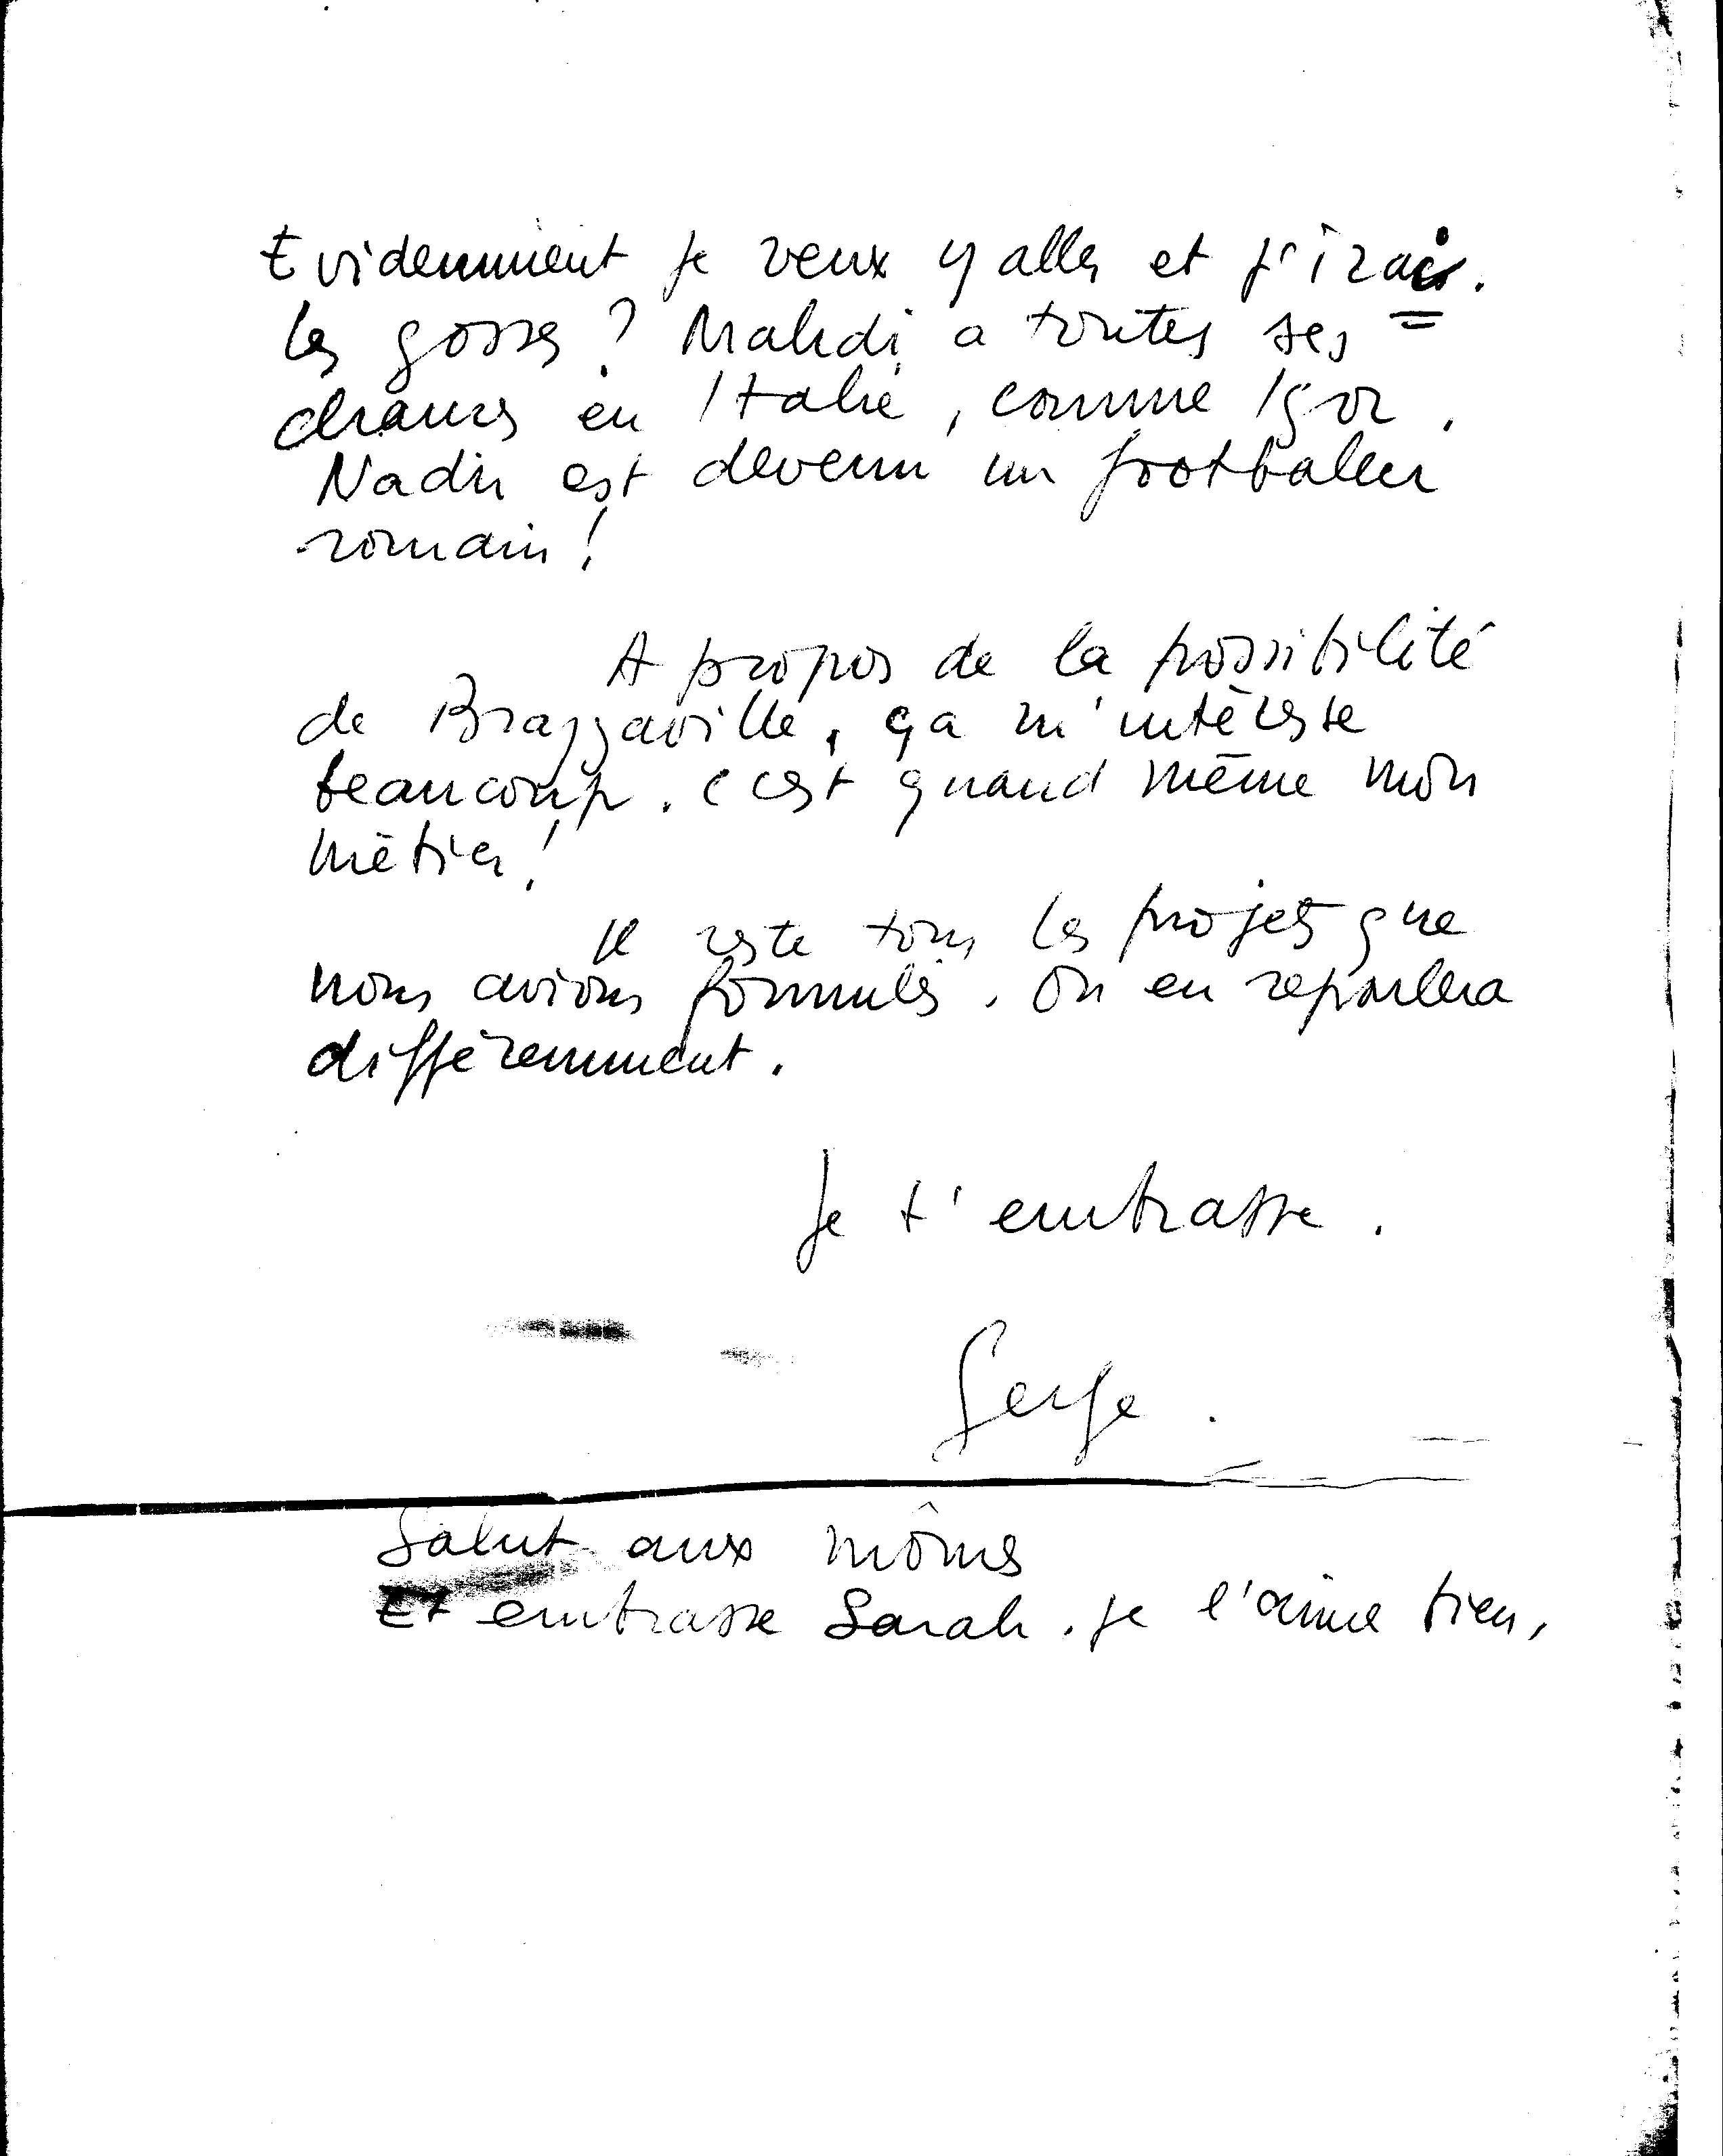 Evidemment je veux y aller et j'irai.
les gosses ? Mahdi a toutes ses
chances en Italie, comme Igor.
Nadir est devenu un footballer
romain !
A propos de la possibilité
de Brazzaville, ça m'intéresse
beaucoup. c'est quand même mon
métier !
Il reste tous les projets que
nous avions formulés. On en reparlera
différemment.
Je t'embrasse.
Serge.
Salut aux mômes
Et embrasse Sarah. je l'aime bien,